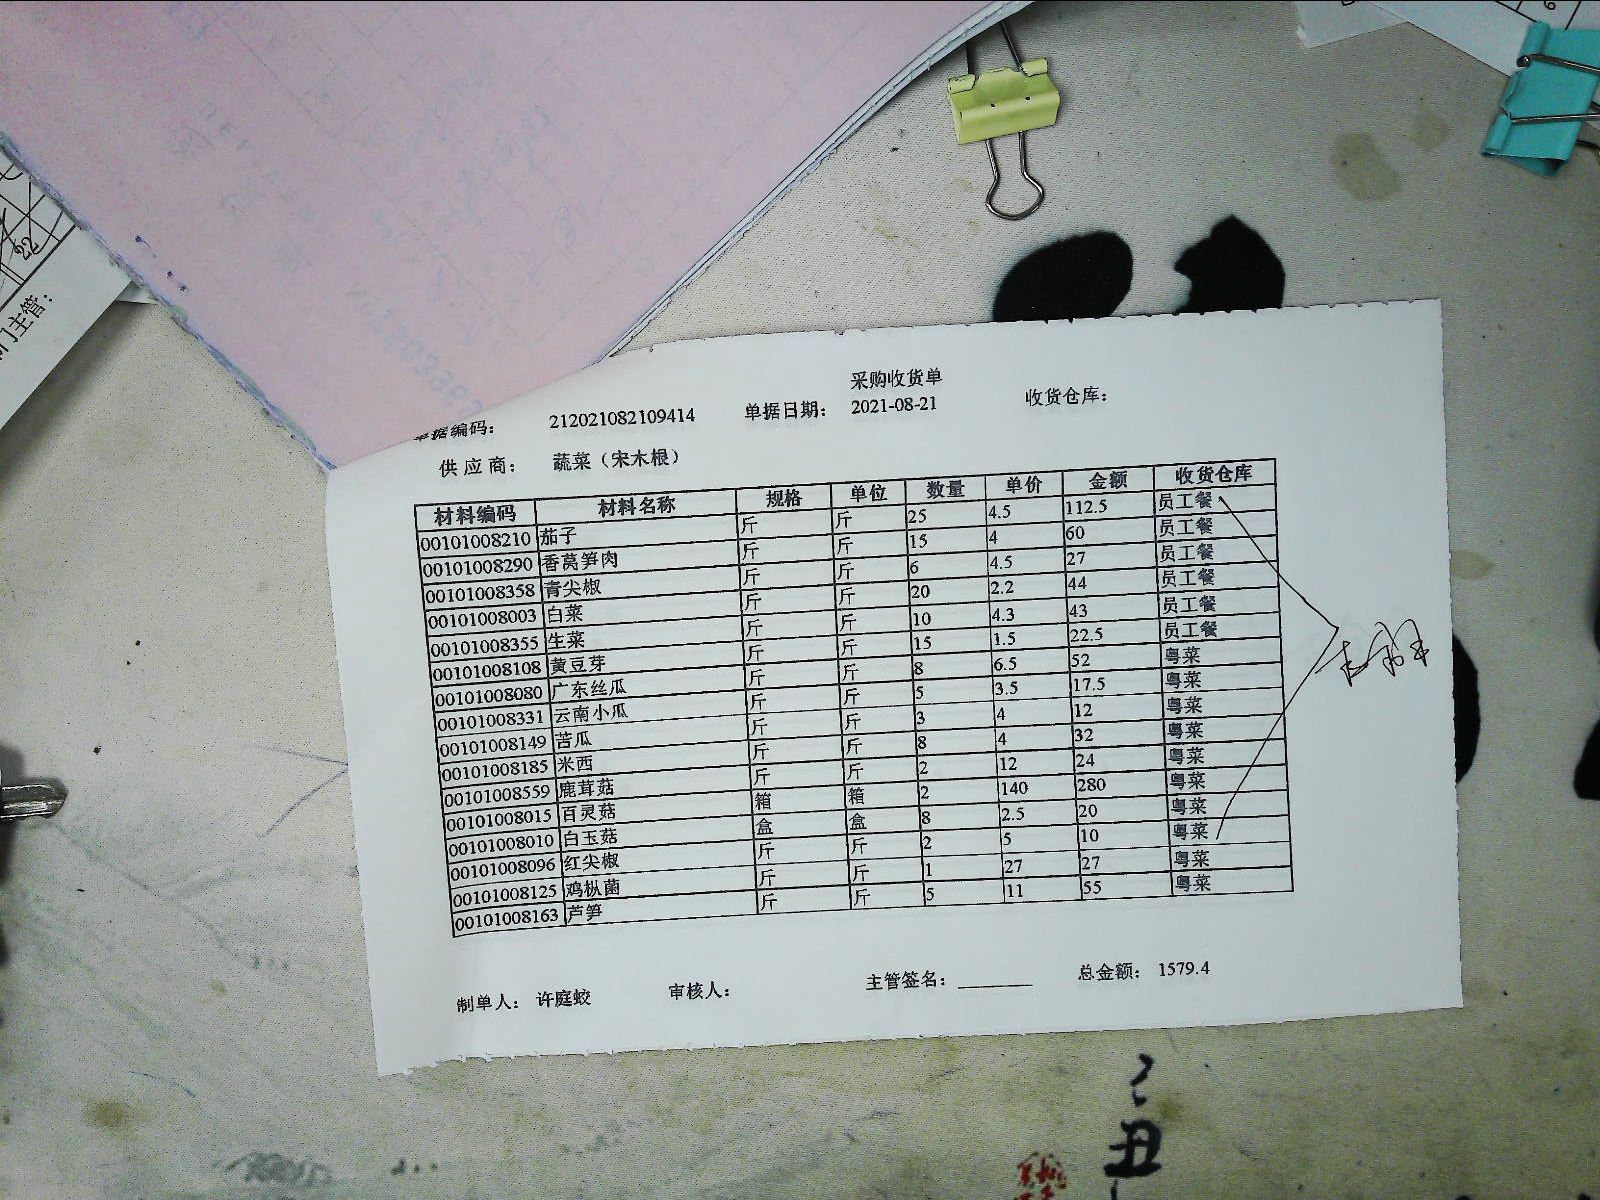 采购收货单
单据编码： 212021082109414 单据日期： 2021-08-21 收货仓库：
供应商： 蔬菜（宋木根）
材料编码 材料名称 规格 单位 数量 单价 金额 收货仓库
00101008210 茄子 斤 斤 25 4.5 112.5 员工餐
00101008290 香莴笋肉 斤 斤 15 4 60 员工餐
00101008358 青尖椒 斤 斤 6 4.5 27 员工餐
00101008003 白菜 斤 斤 20 2.2 44 员工餐
00101008355 生菜 斤 斤 10 4.3 43 员工餐
00101008108 黄豆芽 斤 斤 15 1.5 22.5 员工餐
00101008080 广东丝瓜 斤 斤 8 6.5 52 粤菜
00101008331 云南小瓜 斤 斤 5 3.5 17.5 粤菜
00101008149 苦瓜 斤 斤 3 4 12 粤菜
00101008185 米西 斤 斤 8 4 32 粤菜
00101008559 鹿茸菇 斤 斤 2 12 24 粤菜
00101008015 百灵菇 箱 箱 2 140 280 粤菜
00101008010 白玉菇 盒 盒 8 2.5 20 粤菜
00101008096 红尖椒 斤 斤 2 5 10 粤菜
00101008125 鸡枞菌 斤 斤 1 27 27 粤菜
00101008163 芦笋 斤 斤 5 11 55 粤菜
制单人： 许庭蛟 审核人： 主管签名： 总金额： 1579.4
门主管：
22
丑